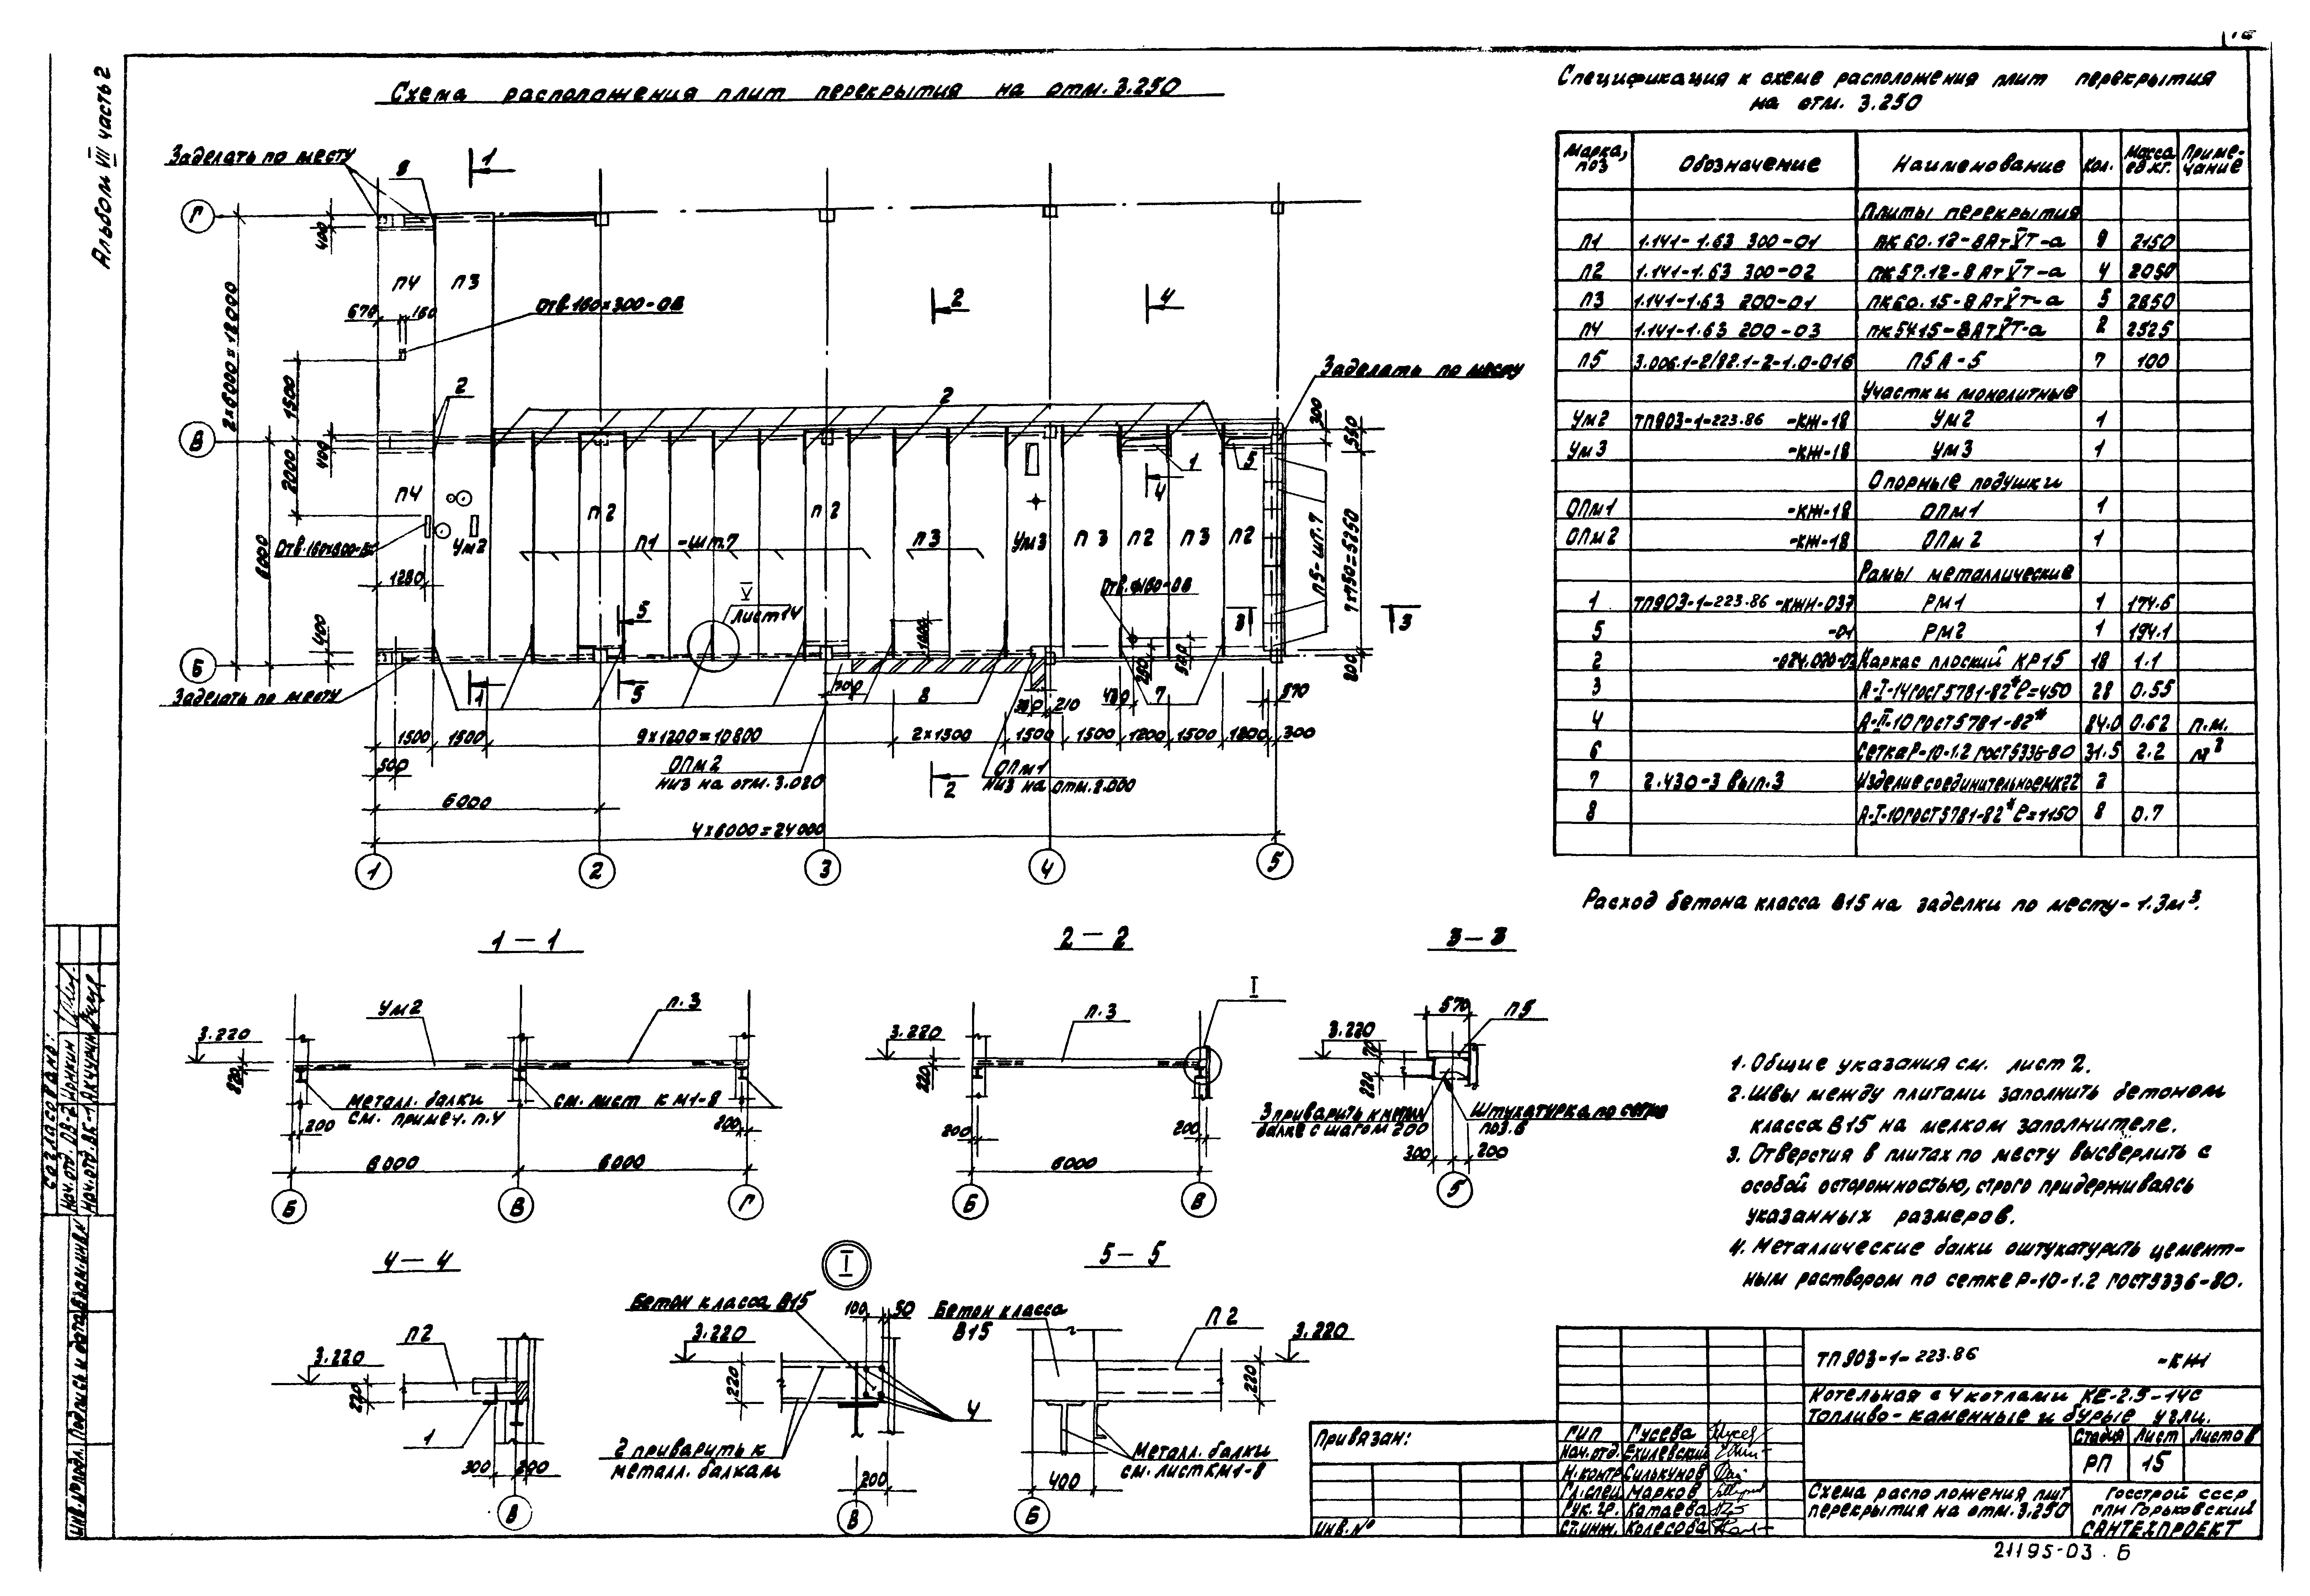 Альбом VII часть 2
Схема расположения плит перекрытия на отм. 3.250
Заделать по месту
8
1
Г
400
П4
П3
Отв. 160×300-ОВ
2
4
670
160
2×6000=12000
1500
2
2
Заделать по месту
300
550
В
400
2000
1
5
4
П4
П2
П2
Ум2
П1 -шт.7
П3
Ум3
П3
П2
П3
П2
П5-шт.7
7×750=5250
6000
1280
V
Лист 14
Отв. ф160-ОВ
5
3
3
400
1000
200
Б
Заделать по месту
1
5
8
7
210
570
1500
1500
9×1200=10800
2×1500
1500
1500
1200
1500
1200
300
500
ОПм2
низ на отм. 3.020
2
ОПм1
6000
4×6000=24000
1
2
3
4
5
Спецификация к схеме расположения плит перекрытия
на отм. 3.250
Марка, поз
Обозначение
Наименование
Кол.
Масса ед кг.
Приме-чание
Плиты перекрытия
П1 1.141-1.63 300-01 ПК 60.12-8АтVТ-а 2150
П2 1.141-1.63 300-02 ПК 57.12-8АтVТ-а 4 2050
П3 1.141-1.63 200-01 ПК 60.15-8АтVТ-а 5 2850
П4 1.141-1.63 200-03 ПК 54.15-8АтVТ-а 2 2525
П5 3.006.1-2/82.1-2-1.0-016 П5А-5 7 100
Участки монолитные
Ум2 ТП903-1-223.86 -КЖ-18 Ум2 1
Ум3 -КЖ-18 Ум3 1
Опорные подушки
ОПм1 -КЖ-18 ОПм1 1
ОПм2 -КЖ-18 ОПм2 1
Рамы металлические
1 ТП903-1-223.86 -КЖН-037 РМ1 1 174.6
5 -01 РМ2 1 194.1
2 Каркас плоский КР15 18 1.1
3 А-I-14 ГОСТ 5781-82* ℓ=450 28 0.55
4 А-II-10 ГОСТ 5781-82* 84.0 0.62 п.м.
6 Сетка Р-10-1.2 ГОСТ 5336-80 31.5 2.2 м²
7 2.430-3 вып.3 Изделие соединительное МК22 2
8 А-I-10 ГОСТ 5781-82* ℓ=1150 8 0.7
Расход бетона класса В15 на заделки по месту - 1.3м³.
1-1
Ум2
П.3
3.220
220
Металл. балки
см. примеч. п.4
см. лист КМ1-8
200
200
6000
6000
Б
В
Г
2-2
I
П.3
3.220
220
200
200
6000
Б
В
3-3
570
П5
3.220
70
220
3 приварить к металл
балке с шагом 200
Штукатурка по сетке
поз.6
300
200
5
1. Общие указания см. лист 2.
2. Швы между плитами заполнить бетоном
класса В15 на мелком заполнителе.
3. Отверстия в плитах по месту высверлить с
особой осторожностью, строго придерживаясь
указанных размеров.
4. Металлические балки оштукатурить цемент-
ным раствором по сетке Р-10-1.2 ГОСТ 5336-80.
4-4
П2
3.220
220
1
300
200
В
I
Бетон класса В15
100
50
3.220
220
4
2 приварить к
металл. балкам
200
В
5-5
Бетон класса
В15
П2
3.220
220
Металл. балки
см. лист КМ1-8
400
Б
Согласовано:
Нач. отд. ОВ-2
Нач. отд. ВК-1
Инв. № подл.
Подпись и дата
Взам. инв. №
Привязан:
Инв. №
ТП 903-1-223.86 -КЖ
Котельная с 4 котлами КЕ-2.5-14с
Топливо-каменные и бурые угли.
ГИП Гусева
Нач. отд. Ехилевский
Н. контр Силькунов
Гл. спец. Марков
Рук. гр. Катаева
Ст. инж. Колесова
Стадия Лист Листов
РП 15
Схема расположения плит
перекрытия на отм. 3.250
Госстрой СССР
ГПИ Горьковский
САНТЕХПРОЕКТ
21195-03 .Б